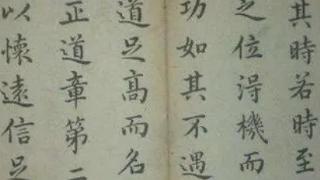 其時若時至
之位得機而
功如其不遇
道足高而名
正道章第二
以懷遠信足